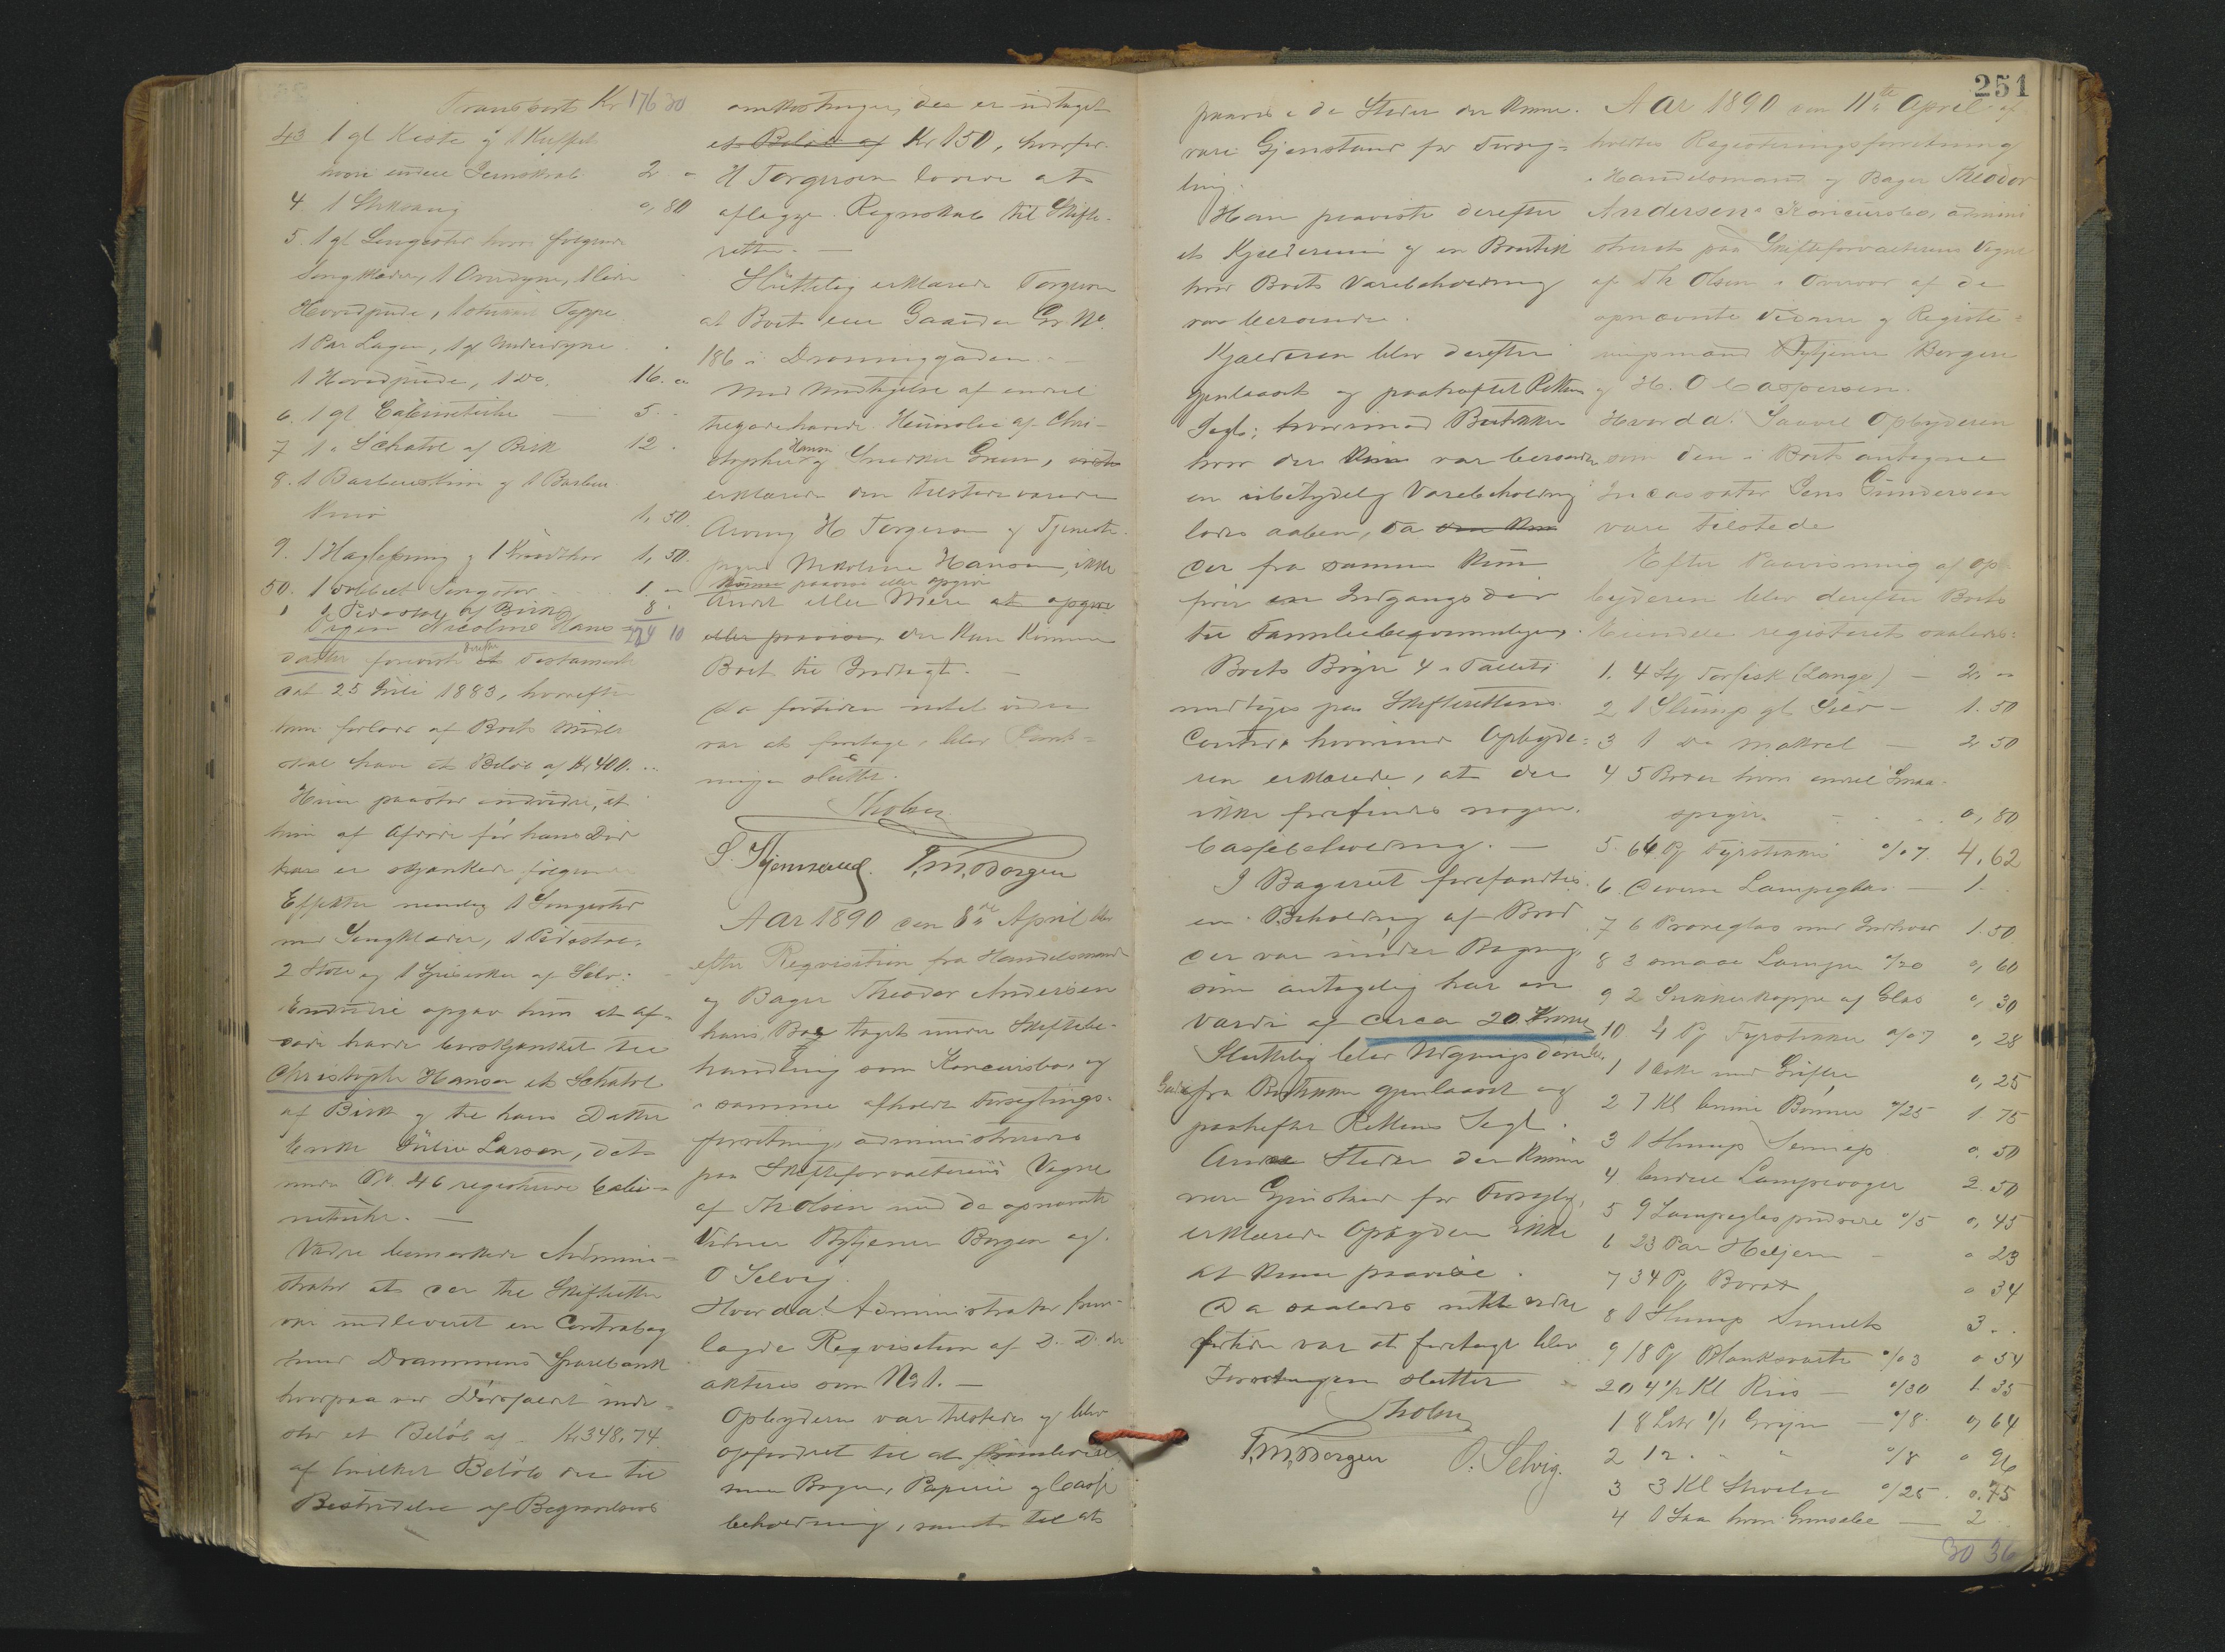 Transport Kr 176 30
43 1 gl Kiste og 1 Kuffert
hvori endeel Jernskrab 2 "
4. 1 Strksaug 0,80
5. 1 gl Sengested hvori følgende
Sengklæder, 1 Overdyne, 1 liden
Hovedpude, 1 Teppe
1 Par Lagen, 1 gl Underdyne
1 Hovedpude, 1 do. 16. "
6. 1 gl 5. "
7 1 " Schatol af Birk 12 "
8. 1 Barberskrin og 1 Barber
kniv 1,50.
9. 1 Haglepung og 1 Krudthor 1,50.
50. 1 dobbelt Sengsted 1. "
1 1 Pidestol af Birk 8.
Pigen Nicoline Hans 224 10
datter foreviste derefter et Testamente
dat 25 Juli 1883, hvorefter
hun forlods af Boets Midler
skal have et Beløb af Kr 400. "
Hun paastod endvidere, at
hun af Afdøde før hans Død
har er skjænket følgende
Effekter nemlig 1 Sengested
med Sengklæder, 1 Pidestol,
2 Stole og 1 Spiseske af Sølv.
Endvidere opgav hun at af-
døde havde bortskjænket til
Christopher Hansen et Schatol
af Birk og til hans Datter
Enke Julie Larsen, det
under No. 46 registrerede
Vidre bemærkede Admini-
strator at der til Skifteretten
var indleveret en Contrabog
med Drammens Sparebank
hvorpaa ved Dødsfaldet inde-
stod et Beløb af Kr 348,74
af hvilket Beløb der til
Bestridelse af Begravelses
omkostninger, der er udtaget
et Beløb af Kr 150, hvorfor
H Torgersen lovede at
aflægge Regnskab til Skifte-
retten. —
Sluttelig erklærede Torgersen
at Boet eier Gaarden Gr. No.
186 i Dronninggaden.
Med Undtagelse af endeel
tilgodehavende Huusleie af Chri-
stopher Hansen og Snedker Green, vidste
erklærede den tilstedeværende
Arving H Torgersen og Tjeneste-
pigen Nicoline Hansen, ikke
kunne paavise eller opgive
Andet eller Mere at opgive
eller paavise, der kan komme
Boet til Indtægt. —
Da fortiden intet videre
var at foretage, blev Forret-
ningen sluttet.
Tholsen
S. Tjernsrud. T. M. Borgen
Aar 1890 den 8de April blev
efter Reqvisition fra Handelsmand
og Bager Theodor Andersen
hans Bo taget under Skiftebe-
handling som Koncursbo, og
i samme afholdt Forseglings-
forretning administreret
paa Skifteforvalterens Vegne
af Th Olsen med de opnævnte
Vidner Bytjener Borgen og
O Selvig.
Hvorda! Administrator frem-
lagde Reqvisition af D. D. der
akteres som No 1. —
Opbyderen var tilstede og blev
opfordret til at fremlevere
sine Bøger, Papirer og Casse
beholdning, samt til at
paavise de Steder der kunne
være Gjenstand for Forseg-
ling.
Han paaviste derefter
et Kjælderrum og en Boutik
hvor Boets Varebeholdning
var beroende.
Kjælderen blev derefter
gjenlaast og paaheftet Rettens
Segl; hvorimod Butikken
hvor der kun var beroende
en ubetydelig Varebeholdning
lodes aaben, da den kun
der fra samme kun
fører en Indgangsdør
til Familiebeqvemmeligen.
Boets Bøger 4 i Tallet
medtoges paa Skifterettens
Contor hvorimod Opbyde-
ren erklærede, at der
ikke forefindes nogen
Cassebeholdning. —
I Bageriet forefandtes
en Beholdning af Brød
der var under Bagning,
som antagelig har en
Værdi af circa 20 Kroner
Sluttelig blev Udgangsdøren
fra Butikken gjenlaast og
paaheftet Rettens Segl.
Andre Steder der kunne
være Gjenstand for Forsegling,
erklærede Opbyderen ikke
at kunne paavise.
Da saaledes intet videre
fortiden var at foretage blev
Forretningen sluttet
Tholsen
T. M. Borgen O. Selvig.
251
Aar 1890 den 11te April af
holdtes Registreringsforretning
i Handelsmand og Bager Theodor
Andersens Koncursbo, admini
streret paa Skifteforvalterens Vegne
af Th Olsen i Overvær af de
opnævnte Vidner og Registe-
ringsmænd Bytjener Borgen
og H. O Caspersen.
Hvorda! Saavel Opbyderen
som den i Boet antagne
Incassator Jens Gundersen
vare tilstede
Efter Paavisning af Op
byderen blev derefter Boets
Eiendele registreret saaledes:
1. 4 St Torfisk (Lange) — 2. "
2 1 Slump gl Sild — 1.50
3 1 do Makrel — 2 50
4 5 Boxer hvori endeel Smaa-
spiger. 0,80
5. 66 Pj Fyrstikker 0/07. 4,62
6. Diverse Lampeglas — 1.
7 6 Prøveglas med Indhold 1.50
8 3 smaae Lamper 0/20 0,60
9 2 Sukkerkoppe af Glas 0,30
10 4 Pj Fyrstikker 0/07 0,28
1 1 Æske med Grifler 0,25
2 7 Kl brune Bønner 0/25 1.75
3 1 Slump Sennep 0.50
4 Endeel Lampevæger 2.50
5 9 Lampeglaspudsere 0/5 0,45
6 23 Par Heljern — 0 23
7 34 Pj Borax 0 34
8 1 Slump Smult 3..
9 18 Pj Blanksværte 0/03 0 54
20 4½ Kl Riis — 0/30 1.35
1 8 Ltr 1/1 Gryn — 0/8. 0,64
2 12 " " " 0/8 0 96
3 3 Kl Stivelse 0/25. 0.75
4 1 Saa hvori Grønsæbe — 2
30 36